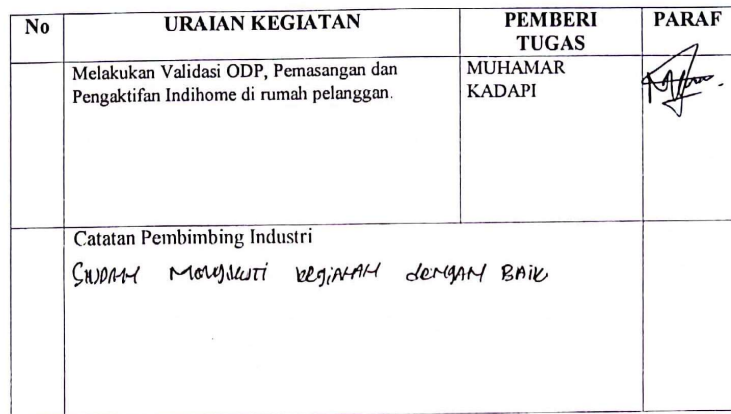 No URAIAN KEGIATAN PEMBERI TUGAS PARAF
Melakukan Validasi ODP, Pemasangan dan
Pengaktifan Indihome di rumah pelanggan.
MUHAMAR
KADAPI
Catatan Pembimbing Industri
SUDAH MengIkuti kegiATAN dengAN BAIK